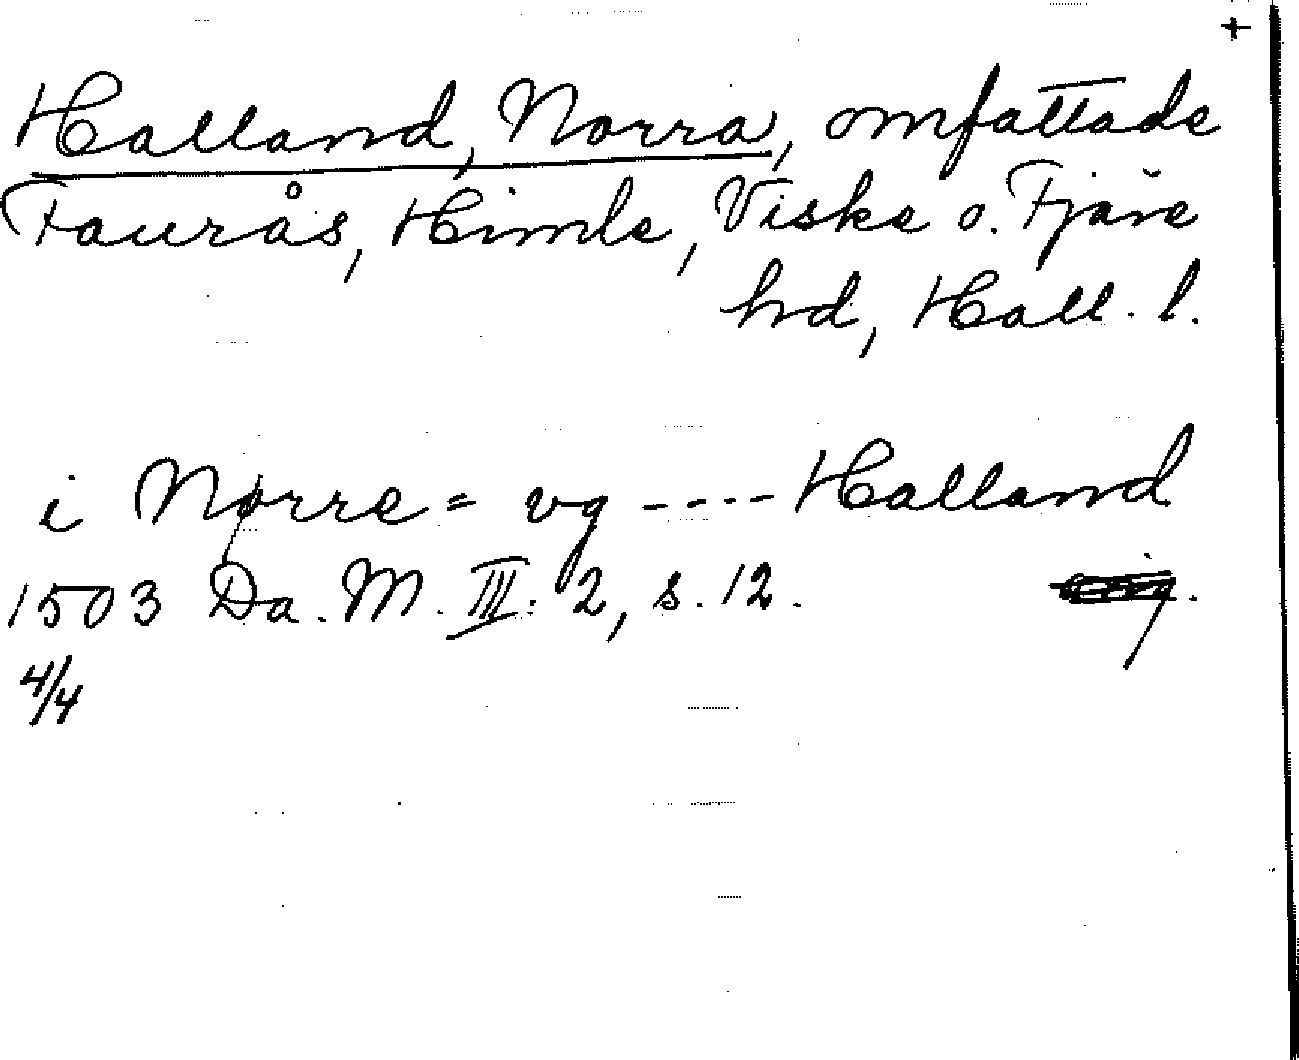 +
Halland, Norra, omfattade
Faurås, Himle, Viske o. Fjäre
hd, Hall. l.
i Nørre= vg ---- Halland
1503 Da. M. III: 2, s. 12.
4/4